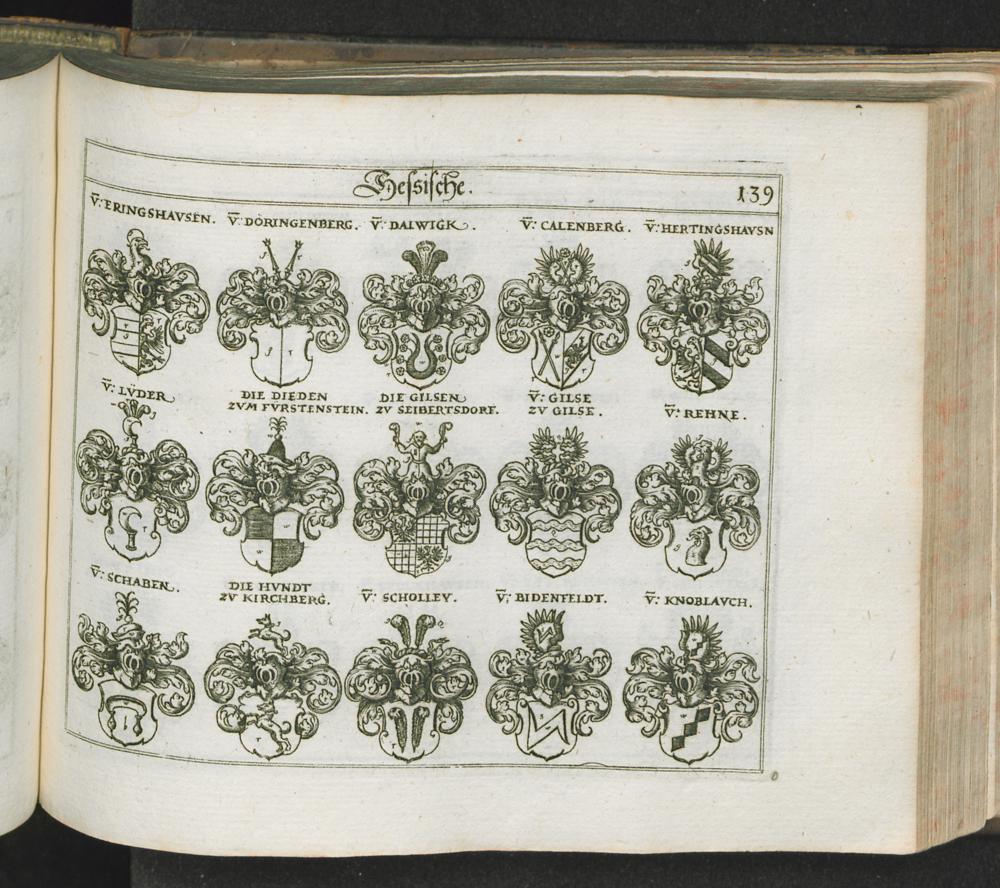 Hessische.
139
V: ERINGSHAVSEN. V: DÖRINGENBERG. V: DALWIGK. V: CALENBERG. V: HERTINGSHAVSN
V: LÜDER. DIE DIEDEN DIE GILSEN V: GILSE V: REHNE.
ZVM FÜRSTENSTEIN. ZV SEIBERTSDORF. ZV GILSE.
V: SCHABEN. DIE HVNDT V: SCHOLLEY. V: BIDENFELDT. V: KNOBLAVCH.
ZV KIRCHBERG.